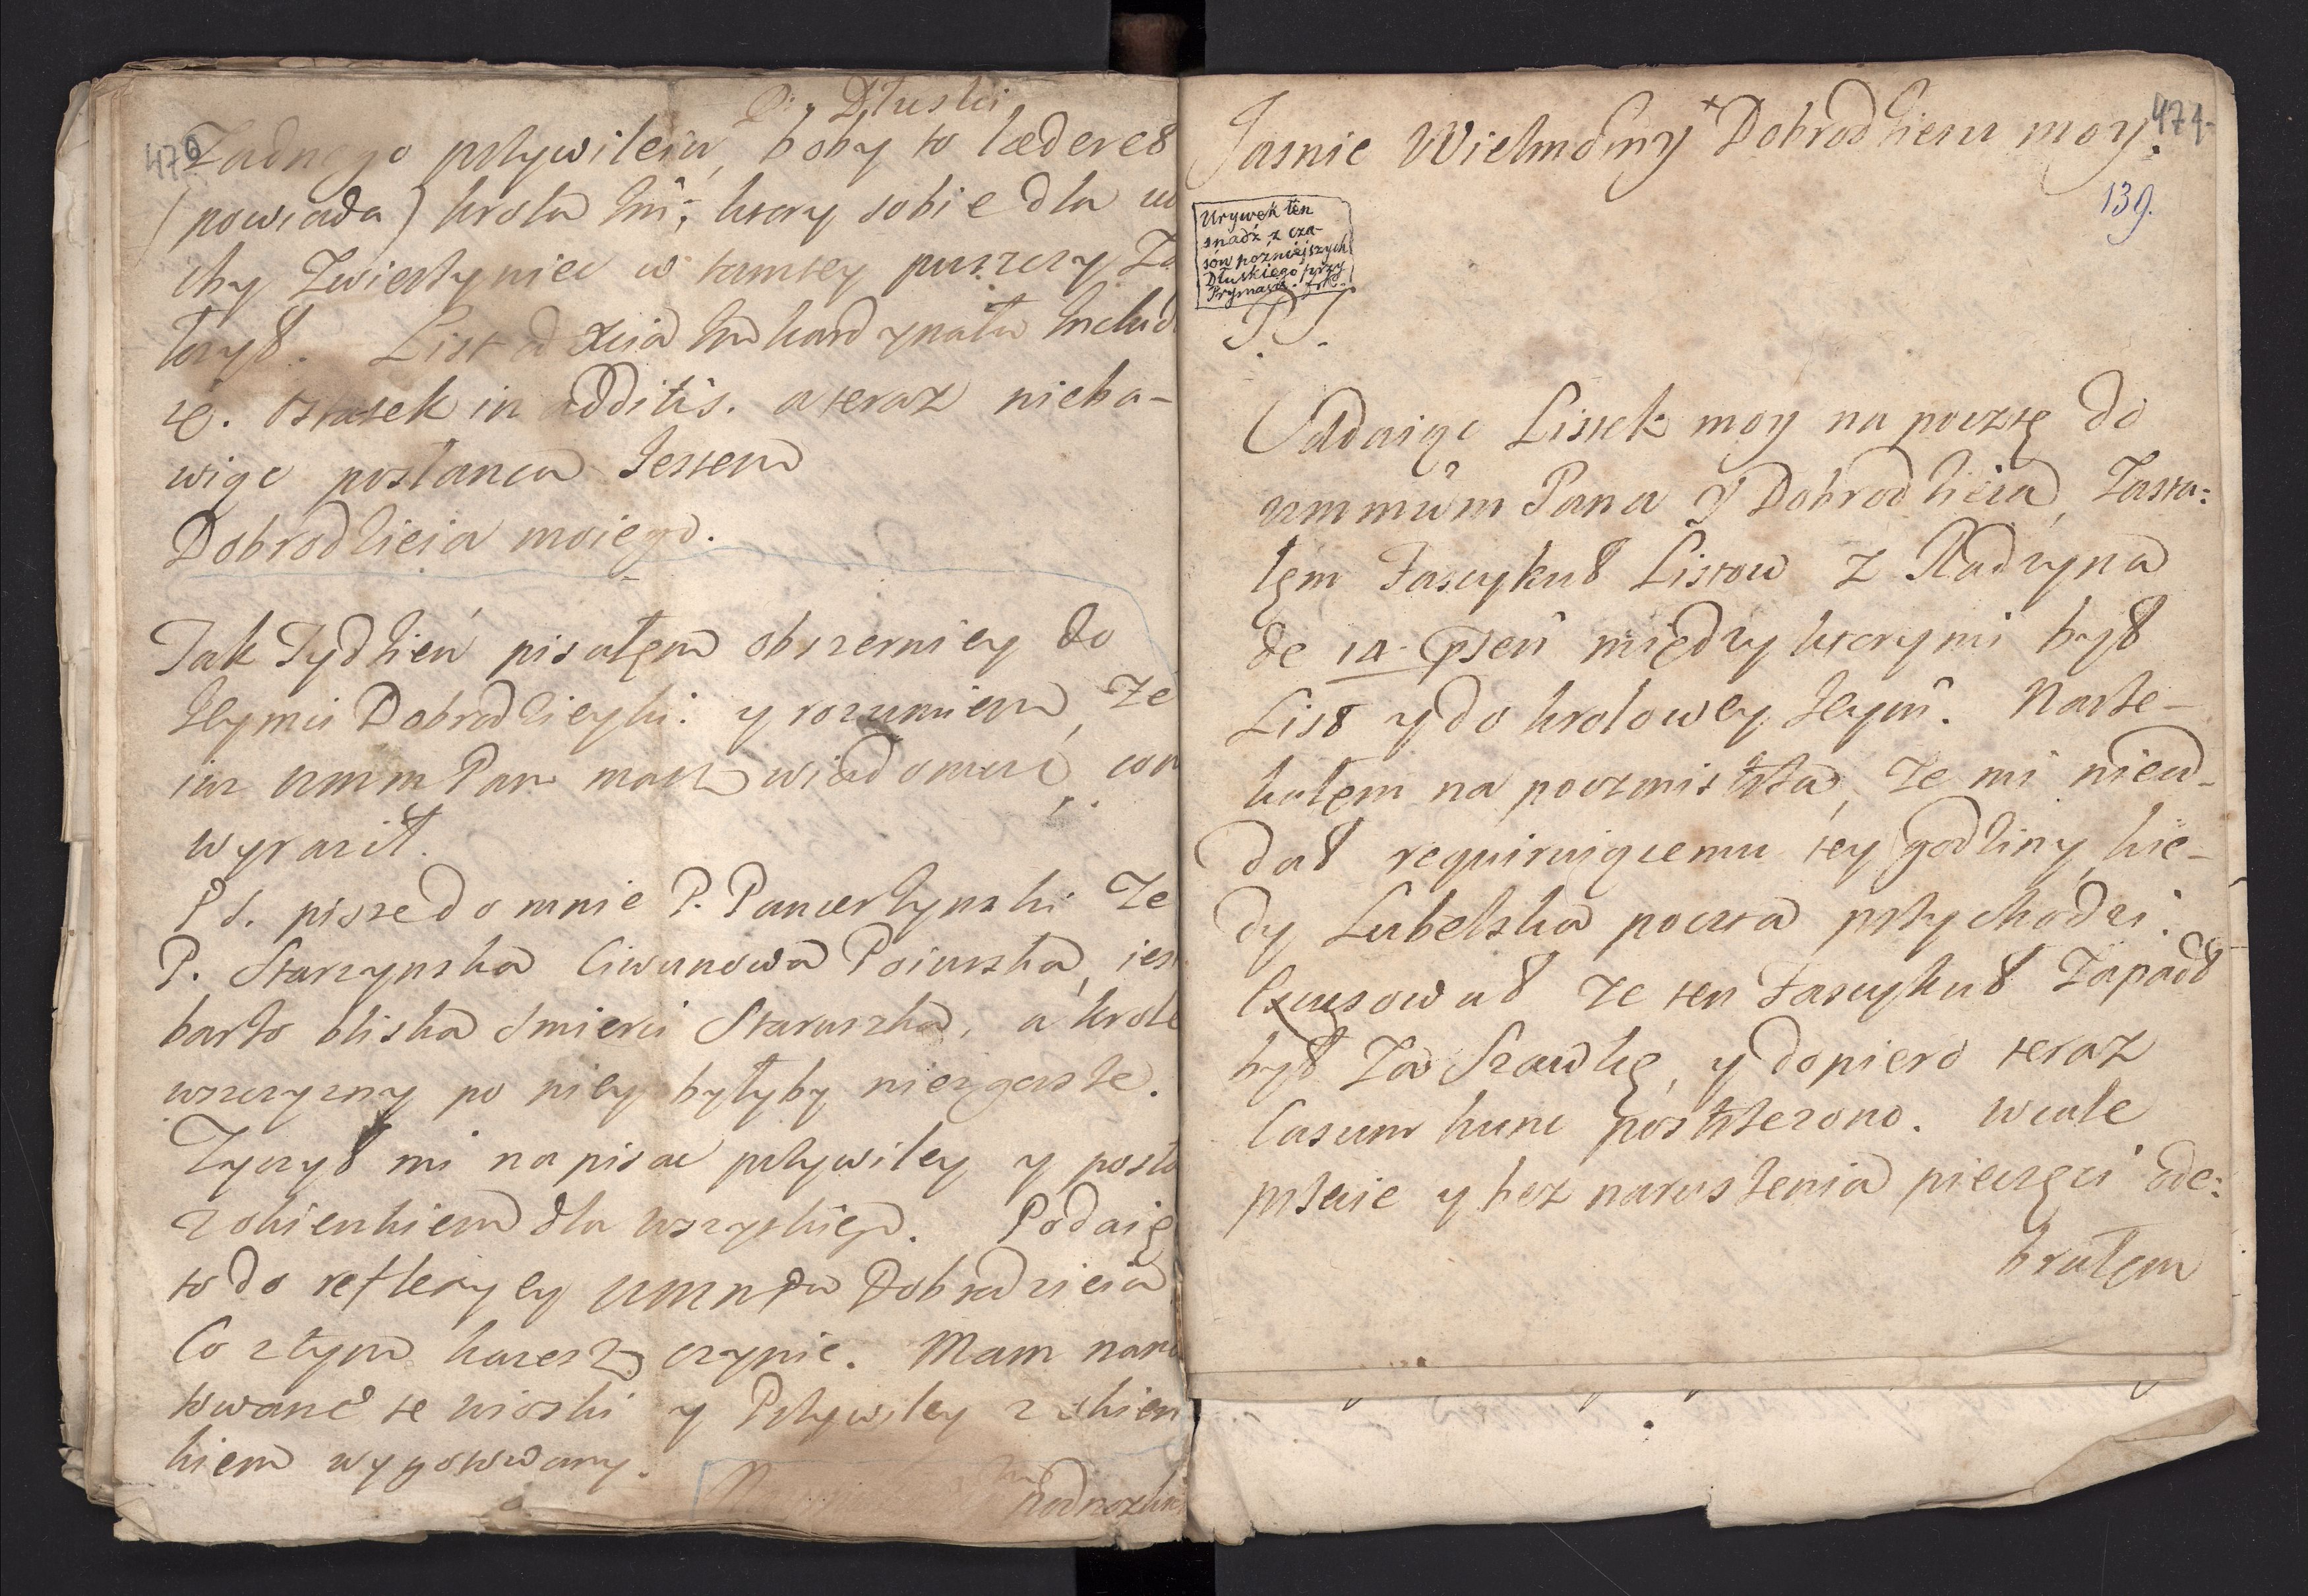 P. Dłuski
470
Zadnego przywileiu, boby to læderet
(powiada) krola Jmi, ktory sobie dla
chy Zwierzyniec w tamtey puszczy Za
łozył. List od Xcia Jm kardynała includ
ię. Ostatek in additis. a teraz nieba-
wiąc posłanca Jestem
Dobrodzieia moiego.
Tak Tydzień pisałem obszerniey do
Jeymci Dobrodzieyki. y rozumiem, Ze
iuz WMM Pan masz wiadomość, com
wyraził.
PS. pisze do mnie P. Pancerzynski Ze
P. Starzynska Ciwunowa Poiurska, iest
barzo bliska smierci Staruszka, a krole
wszczyzny po niey byłyby niezgorsze.
Zyczył mi napisac przywiley y posła
z okienkiem dla wszystkiego. Podaię
to do reflexyey WMMPa Dobrodzieia
Co z tym kazesz czynic. Mam nano
towane te wioski y Przywiley z okien
kiem wygotowany.
Podnozkiem
471
Jasnie Wielmozny Dobrodzieiu moy.
139.
Urywek ten
snadź z cza-
sów pozniejszych
Dłuskiego przy
Prymasie.
P.S.
Oddaiąc Listek moy na pocztę do
WMMWM Pana y Dobrodzieia, Zasta-
łem Fascykuł Listow z Radzyna
de 14. psen między ktorymi był
List y do krolowey Jeym. Narze-
kałem na poczmistrza, Ze mi nieod-
dał requiruiącemu tey godziny, kie-
dy Lubelska poczta przychodzi.
Excusował Ze ten Fascykuł Zapadł
był Za Szawkę, y dopiero teraz
Casum hunc postrzezono. Wcale
pszcie y bez naruszenia pieczęci ode-
brałem